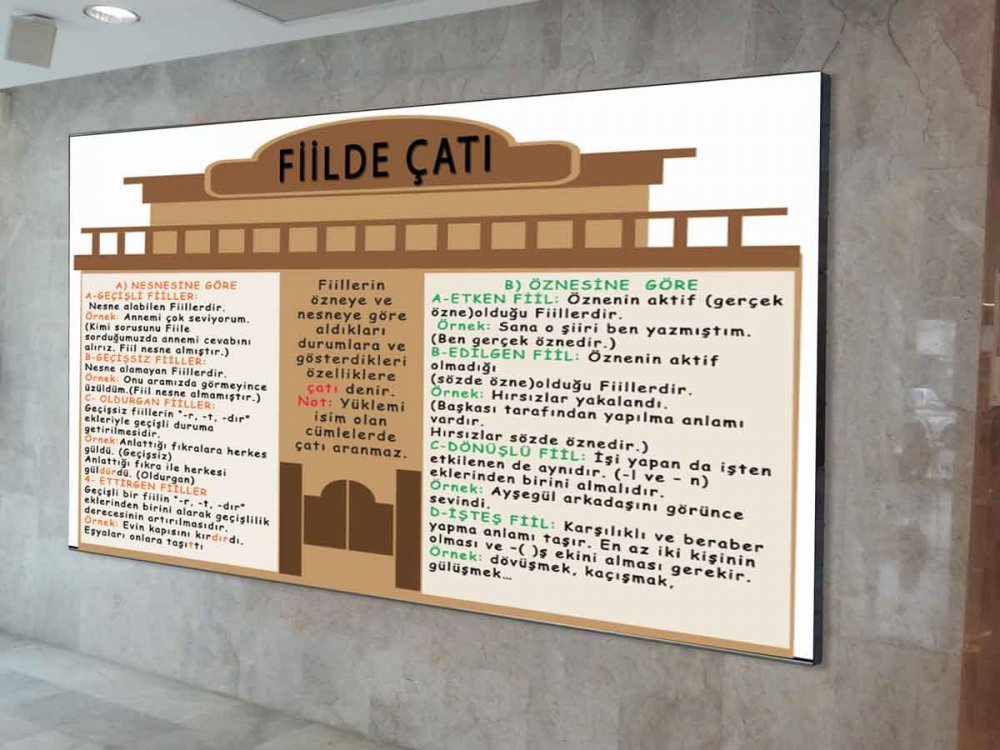 FİİLDE ÇATI
A) NESNESİNE GÖRE
A-GEÇİŞLİ FİİLLER:
Nesne alabilen Fiillerdir.
Örnek: Annemi çok seviyorum.
(Kimi sorusunu Fiile
sorduğumuzda annemi cevabını
alırız. Fiil nesne almıştır.)
B-GEÇİŞSİZ FİİLLER:
Nesne alamayan Fiillerdir.
Örnek: Onu aramızda görmeyince
üzüldüm.(Fiil nesne almamıştır.)
C- OLDURGAN FİİLLER:
Geçişsiz fiillerin "-r, -t, -dır"
ekleriyle geçişli duruma
getirilmesidir.
Örnek:Anlattığı fıkralara herkes
güldü. (Geçişsiz)
Anlattığı fıkra ile herkesi
güldürdü. (Oldurgan)
4- ETTİRGEN FİİLLER
Geçişli bir fiilin "-r, -t, -dır"
eklerinden birini alarak geçişlilik
derecesinin artırılmasıdır.
Örnek: Evin kapısını kırdırdı.
Eşyaları onlara taşıttı
Fiillerin
özneye ve
nesneye göre
aldıkları
durumlara ve
gösterdikleri
özelliklere
çatı denir.
Not: Yüklemi
isim olan
cümlelerde
çatı aranmaz.
B) ÖZNESİNE GÖRE
A-ETKEN FİİL: Öznenin aktif (gerçek
özne)olduğu Fiillerdir.
Örnek: Sana o şiiri ben yazmıştım.
(Ben gerçek öznedir.)
B-EDİLGEN FİİL: Öznenin aktif
olmadığı
(sözde özne)olduğu Fiillerdir.
Örnek: Hırsızlar yakalandı.
(Başkası tarafından yapılma anlamı
vardır.
Hırsızlar sözde öznedir.)
C-DÖNÜŞLÜ FİİL: İşi yapan da işten
etkilenen de aynıdır. (-l ve - n)
eklerinden birini almalıdır.
Örnek: Ayşegül arkadaşını görünce
sevindi.
D-İŞTEŞ FİİL: Karşılıklı ve beraber
yapma anlamı taşır. En az iki kişinin
olması ve -( )ş ekini alması gerekir.
Örnek: dövüşmek, kaçışmak,
gülüşmek...